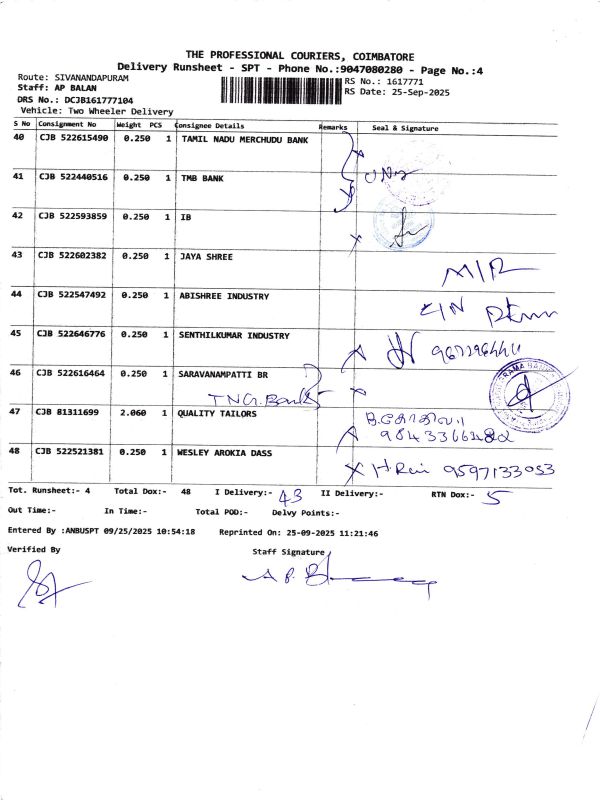 THE PROFESSIONAL COURIERS, COIMBATORE
Delivery Runsheet - SPT - Phone No.:9047080280 - Page No.:4
Route: SIVANANDAPURAM RS No.: 1617771
Staff: AP BALAN RS Date: 25-Sep-2025
DRS No.: DCJB161777104
Vehicle: Two Wheeler Delivery
S No Consignment No Weight PCS Consignee Details Remarks Seal & Signature
40 CJB 522615490 0.250 1 TAMIL NADU MERCHUDU BANK
41 CJB 522440516 0.250 1 TMB BANK
42 CJB 522593859 0.250 1 IB
43 CJB 522602382 0.250 1 JAYA SHREE
44 CJB 522547492 0.250 1 ABISHREE INDUSTRY
45 CJB 522646776 0.250 1 SENTHILKUMAR INDUSTRY
46 CJB 522616464 0.250 1 SARAVANAMPATTI BR
TNG.Bank
47 CJB 81311699 2.060 1 QUALITY TAILORS
48 CJB 522521381 0.250 1 WESLEY AROKIA DASS 9597133053
Tot. Runsheet:- 4 Total Dox:- 48 I Delivery:- 43 II Delivery:- RTN Dox:- 5
Out Time:- In Time:- Total POD:- Delvy Points:-
Entered By :ANBUSPT 09/25/2025 10:54:18 Reprinted On: 25-09-2025 11:21:46
Verified By Staff Signature